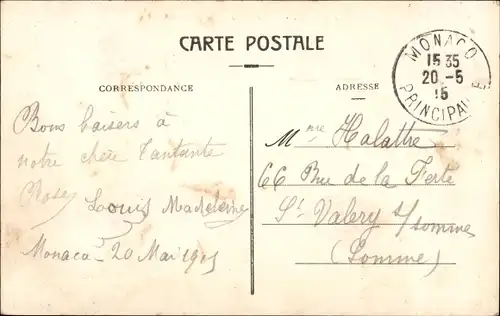 CARTE POSTALE
CORRESPONDANCE
ADRESSE
MONACO
15 35
20 -5
15
PRINCIPAUTE
Bons baisers à
notre chère Tantante
Rose
Louis Madeleine
Monaco 20 Mai 1915
Mme Halattre
66 Rue de la Ferte
St Valery s/somme
(Somme)